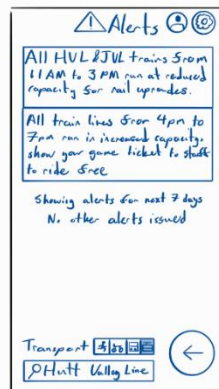 Alerts
All HVL & JVL trains from
11AM to 3PM run at reduced
capacity for rail upgrades.
All train lines from 4pm to
7pm run in increased capacity.
show your game ticket to staff
to ride free
Showing alerts for next 7 days
No other alerts issued
Transport
Hutt Valley Line